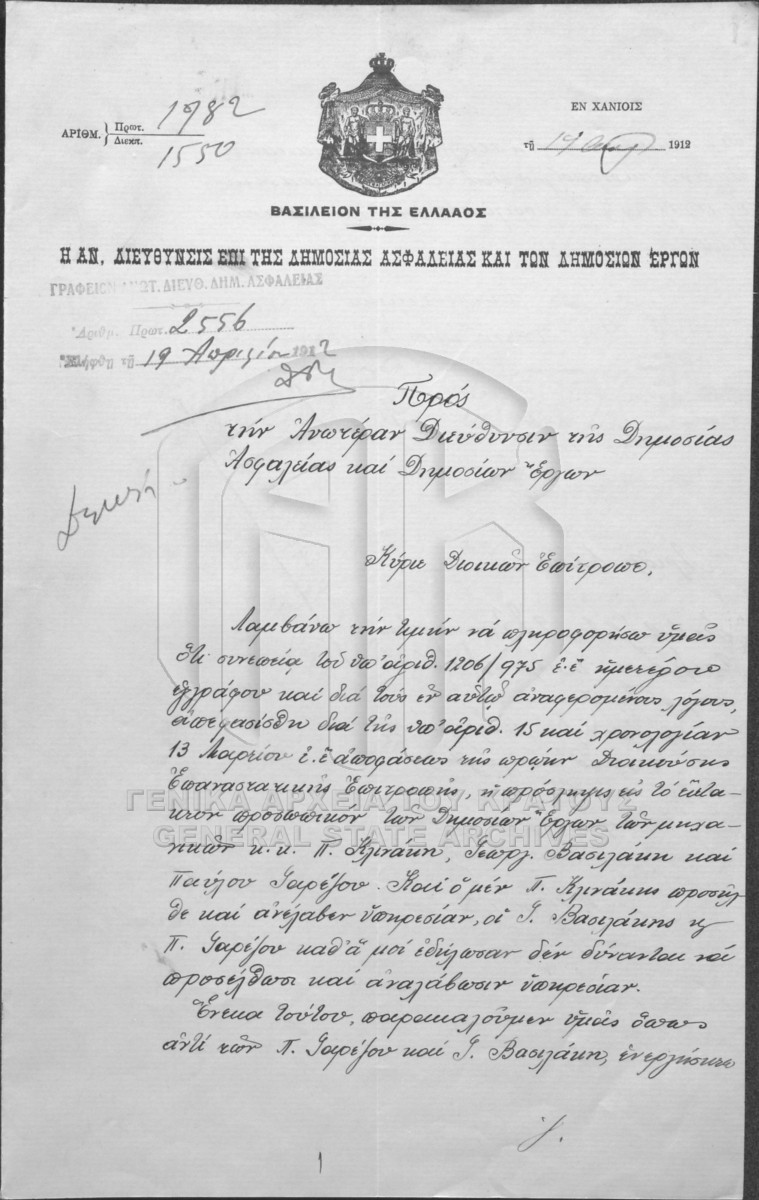 ΑΡΙΘΜ. Πρωτ. 1782
Διεκπ. 1550
ΕΝ ΧΑΝΙΟΙΣ
τῇ 19 1912
ΒΑΣΙΛΕΙΟΝ ΤΗΣ ΕΛΛΑΔΟΣ
Η ΑΝ. ΔΙΕΥΘΥΝΣΙΣ ΕΠΙ ΤΗΣ ΔΗΜΟΣΙΑΣ ΑΣΦΑΛΕΙΑΣ ΚΑΙ ΤΩΝ ΔΗΜΟΣΙΩΝ ΕΡΓΩΝ
ΓΡΑΦΕΙΟΝ ΑΝΩΤ. ΔΙΕΥΘ. ΔΗΜ. ΑΣΦΑΛΕΙΑΣ
Ἀριθμ. Πρωτ. 2556
Ἐλήφθη τῇ 19 Ἀπριλίου 1912
Πρός
τήν Ἀνωτέραν Διεύθυνσιν τῆς Δημοσίας
Ἀσφαλείας καί Δημοσίων Ἔργων
Κύριε Διοικῶν Ἐπίτροπε,
Λαμβάνω τήν τιμήν νά πληροφορήσω ὑμᾶς
ὅτι συνεπείᾳ τοῦ ὑπ' ἀριθ. 1206/975 ἐ.ἔ ἡμετέρου
ἐγγράφου καί διά τούς ἐν αὐτῷ ἀναφερομένους λόγους,
ἀπεφασίσθη διά τῆς ὑπ' ἀριθ. 15 καί χρονολογίαν
13 Μαρτίου ἐ.ἔ ἀποφάσεως τῆς πρῴην Διοικούσης
Ἐπαναστατικῆς Ἐπιτροπῆς, ἡ πρόσληψις εἰς τό ἔκτα-
κτον προσωπικόν τῶν Δημοσίων Ἔργων τῶν μηχα-
νικῶν κ.κ. Π. Κλινάκη, Γεωργ. Βασιλάκη καί
Παύλου Γαρέζου. Καί ὁ μέν Π. Κλινάκης προσῆλ-
θε καί ἀνέλαβεν ὑπηρεσίαν, οἱ Γ. Βασιλάκης κ
Π. Γαρέζου καθ' ἅ μοί ἐδήλωσαν δέν δύνανται νά
προσέλθωσι καί ἀναλάβωσιν ὑπηρεσίαν.
Ἕνεκα τούτου, παρακαλοῦμεν ὑμᾶς ὅπως
ἀντί τῶν Π. Γαρέζου καί Γ. Βασιλάκη, ἐνεργήσητε
1
ΓΕΝΙΚΑ ΑΡΧΕΙΑ ΤΟΥ ΚΡΑΤΟΥΣ
GENERAL STATE ARCHIVES